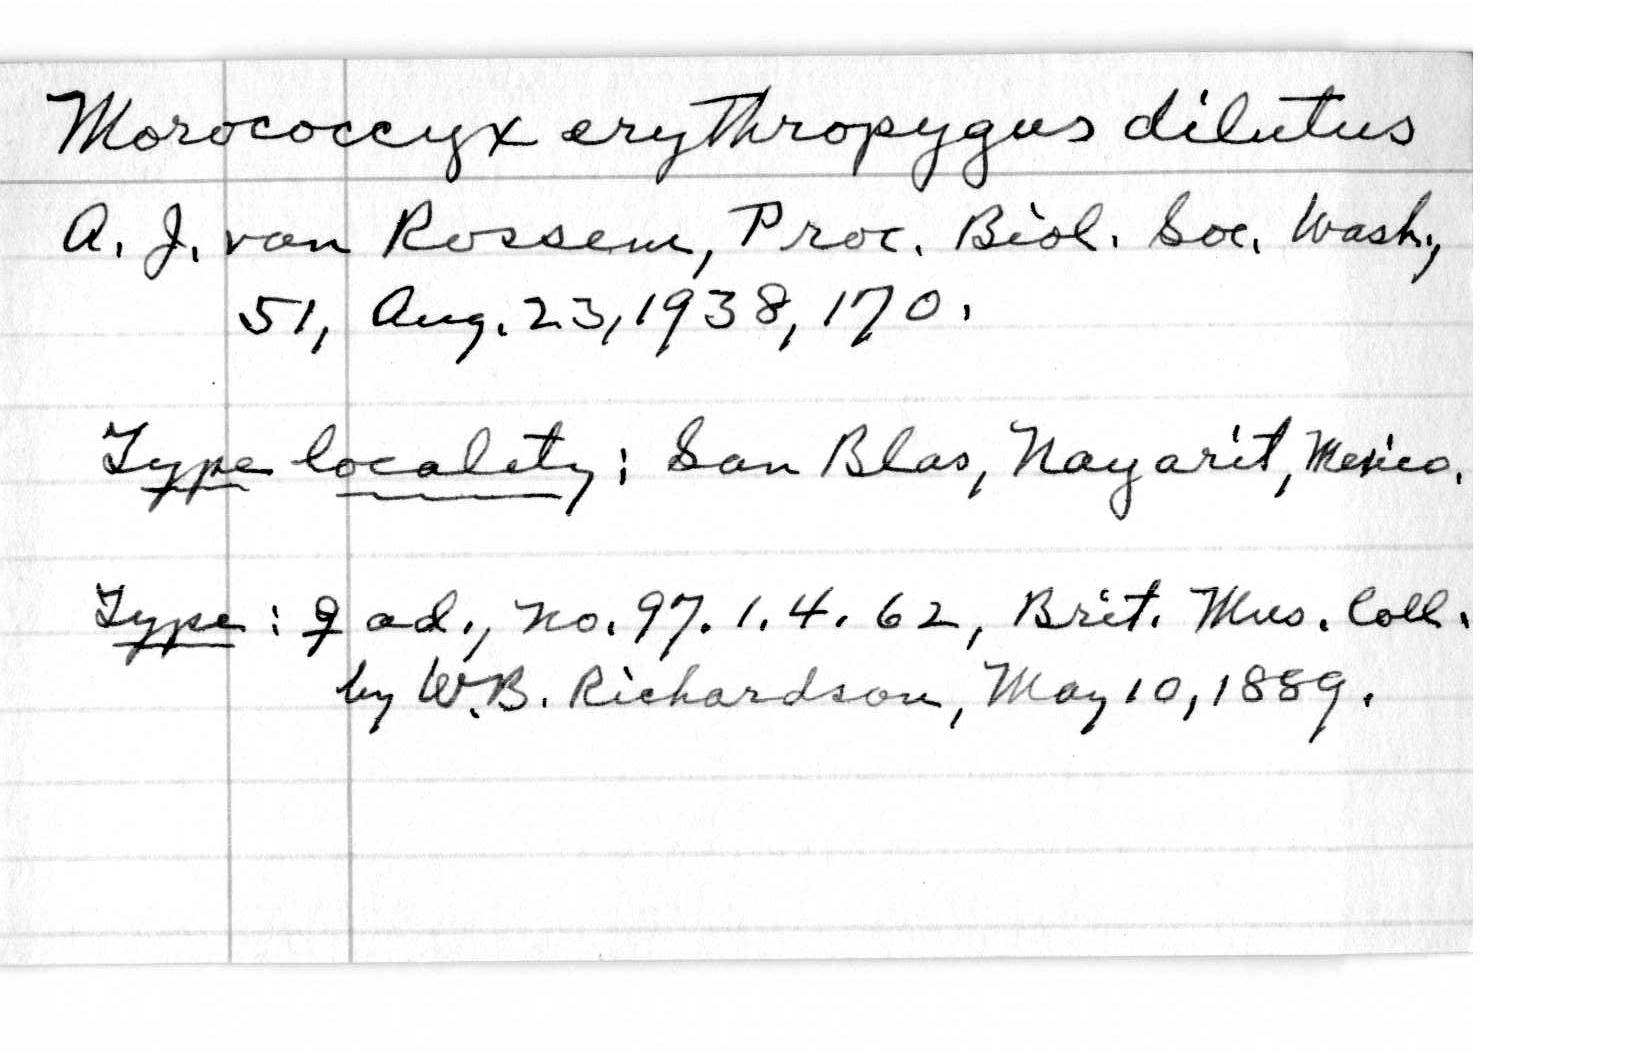 Morococcyx erythropygus dilutus
A. J. van Rossem, Proc. Biol. Soc. Wash.,
51, Aug. 23, 1938, 170.
Type locality: San Blas, Nayarit, Mexico.
Type: ♀ ad., No. 97.1.4.62, Brit. Mus. Coll.
by W.B. Richardson, May 10, 1889.